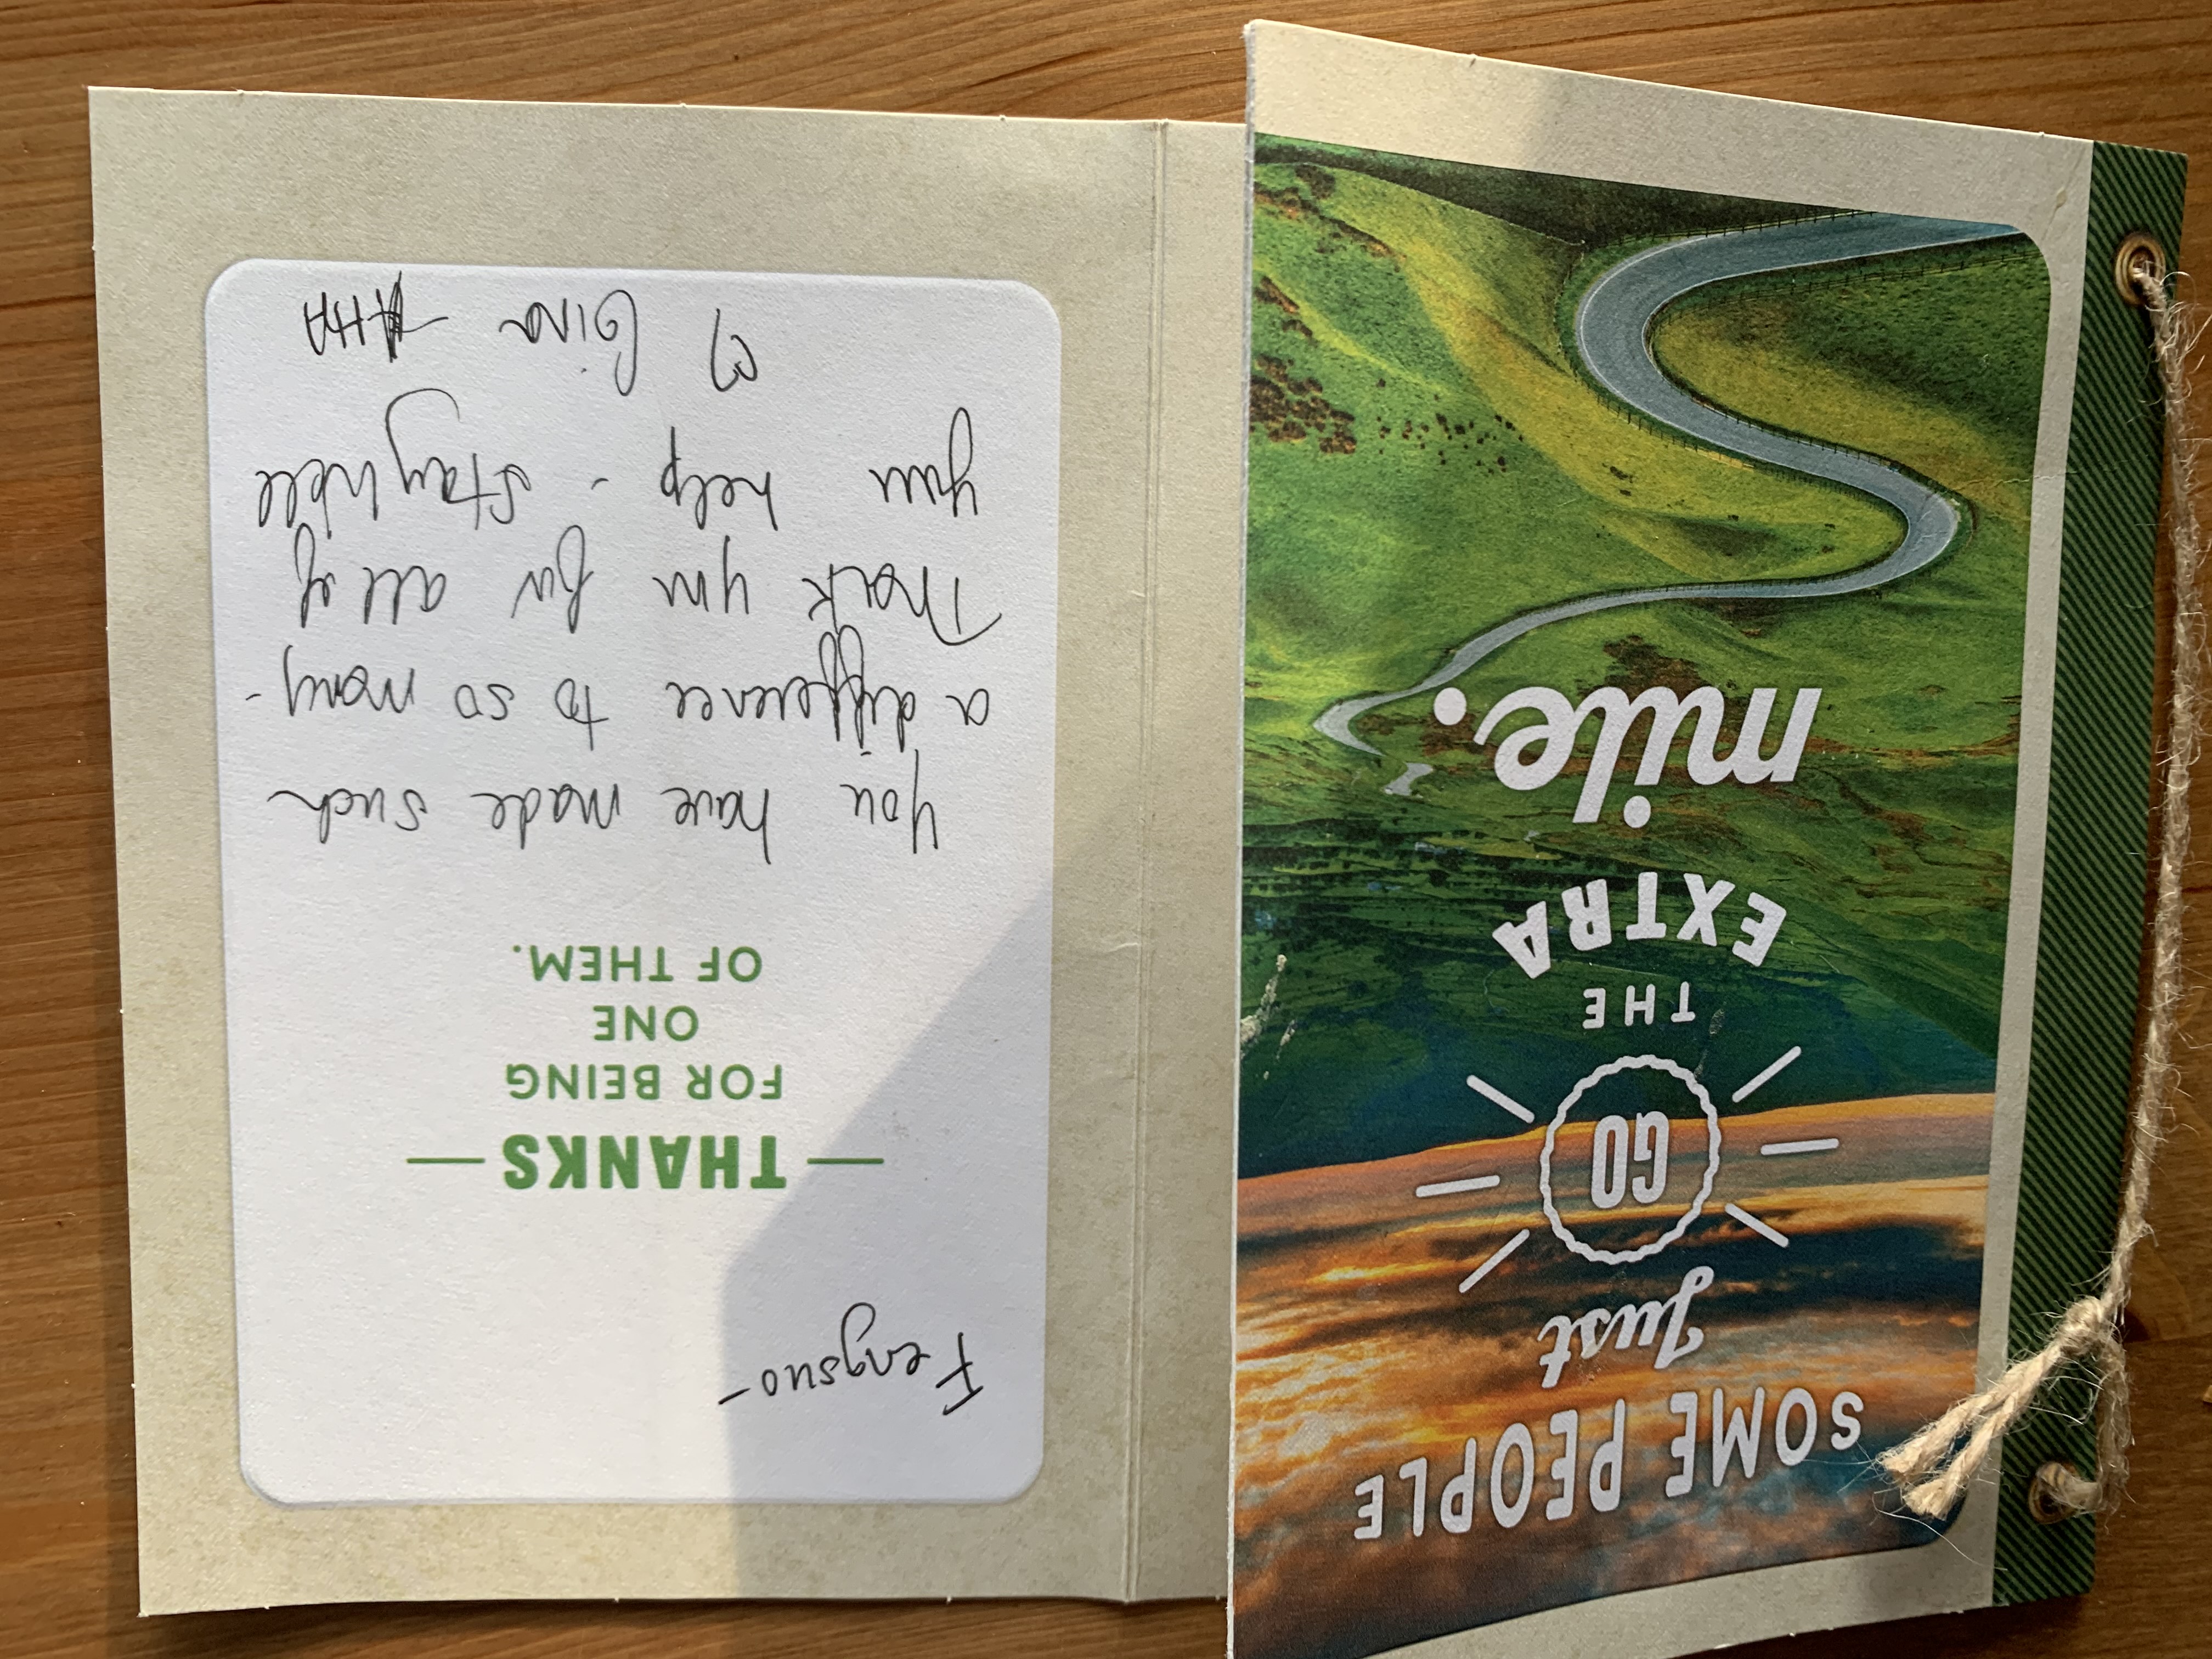 SOME PEOPLE
Just
GO
THE
EXTRA
mile.
Fengsuo -
— THANKS —
FOR BEING
ONE
OF THEM.
You have made such
a difference to so many -
Thank you for all of
your help - Stay well
Gina - AHA